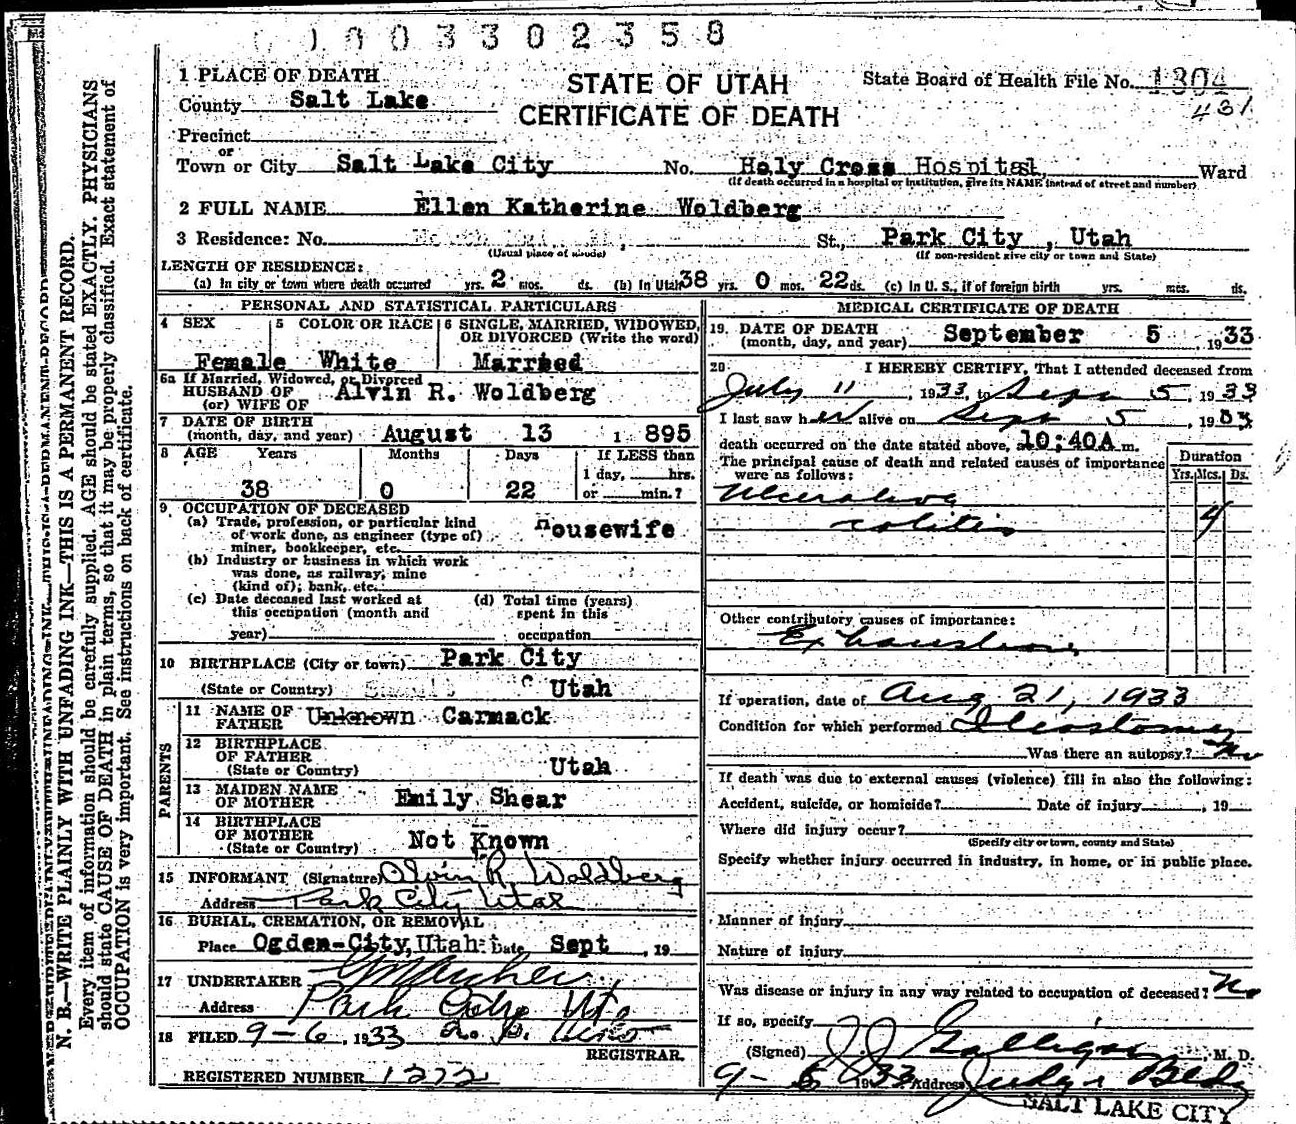 1003302358
1 PLACE OF DEATH
STATE OF UTAH
CERTIFICATE OF DEATH
State Board of Health File No. 1304
431
County Salt Lake
Precinct
or
Town or City Salt Lake City No. Holy Cross Hospital, Ward
(If death occurred in a hospital or institution, give its NAME instead of street and number)
2 FULL NAME Ellen Katherine Woldberg
3 Residence: No. St., Park City, Utah
(Usual place of abode) (If non-resident give city or town and State)
LENGTH OF RESIDENCE:
(a) In city or town where death occurred yrs. 2 mos. ds. (b) In Utah 38 yrs. 0 mos. 22 ds. (c) In U. S., if of foreign birth yrs. mos. ds.
PERSONAL AND STATISTICAL PARTICULARS
4 SEX 5 COLOR OR RACE 6 SINGLE, MARRIED, WIDOWED, OR DIVORCED (Write the word)
Female White Married
6a If Married, Widowed, or Divorced
HUSBAND OF
(or) WIFE OF Alvin R. Woldberg
7 DATE OF BIRTH
(month, day, and year) August 13 1 895
8 AGE Years Months Days If LESS than
1 day, hrs.
or min.?
38 0 22
9. OCCUPATION OF DECEASED
(a) Trade, profession, or particular kind
of work done, as engineer (type of)
miner, bookkeeper, etc. Housewife
(b) Industry or business in which work
was done, as railway; mine
(kind of); bank, etc.
(c) Date deceased last worked at
this occupation (month and
year)
(d) Total time (years)
spent in this
occupation
10 BIRTHPLACE (City or town) Park City
(State or Country) Utah
PARENTS
11 NAME OF
FATHER Unknown Carmack
12 BIRTHPLACE
OF FATHER
(State or Country) Utah
13 MAIDEN NAME
OF MOTHER Emily Shear
14 BIRTHPLACE
OF MOTHER
(State or Country) Not Known
15 INFORMANT (Signature) Alvin R Woldberg
Address Park City Utah
16 BURIAL, CREMATION, OR REMOVAL
Place Ogden-City, Utah Date Sept , 19
17 UNDERTAKER
Address Park City Ut
18 FILED 9-6, 1933
REGISTRAR.
REGISTERED NUMBER 1272
MEDICAL CERTIFICATE OF DEATH
19. DATE OF DEATH
(month, day, and year) September 5 1933
20 I HEREBY CERTIFY, That I attended deceased from
July 11, 1933, to Sept 5, 1933
I last saw her alive on Sept 5, 1933
death occurred on the date stated above, at 10:40A m.
The principal cause of death and related causes of importance
were as follows:
Duration
Yrs. Mos. Ds.
Ulcerative
colitis 4
Other contributory causes of importance:
Exhaustion
If operation, date of Aug 21, 1933
Condition for which performed Ileostomy
Was there an autopsy? No
If death was due to external causes (violence) fill in also the following:
Accident, suicide, or homicide? Date of injury , 19
Where did injury occur?
(Specify city or town, county and State)
Specify whether injury occurred in industry, in home, or in public place.
Manner of injury
Nature of injury
Was disease or injury in any way related to occupation of deceased? No
If so, specify
(Signed) J J Galligan, M. D.
9-5 1933 Address Judge Bldg
SALT LAKE CITY
N. B.—WRITE PLAINLY WITH UNFADING INK—THIS IS A PERMANENT RECORD.
Every item of information should be carefully supplied. AGE should be stated EXACTLY. PHYSICIANS
should state CAUSE OF DEATH in plain terms, so that it may be properly classified. Exact statement of
OCCUPATION is very important. See instructions on back of certificate.